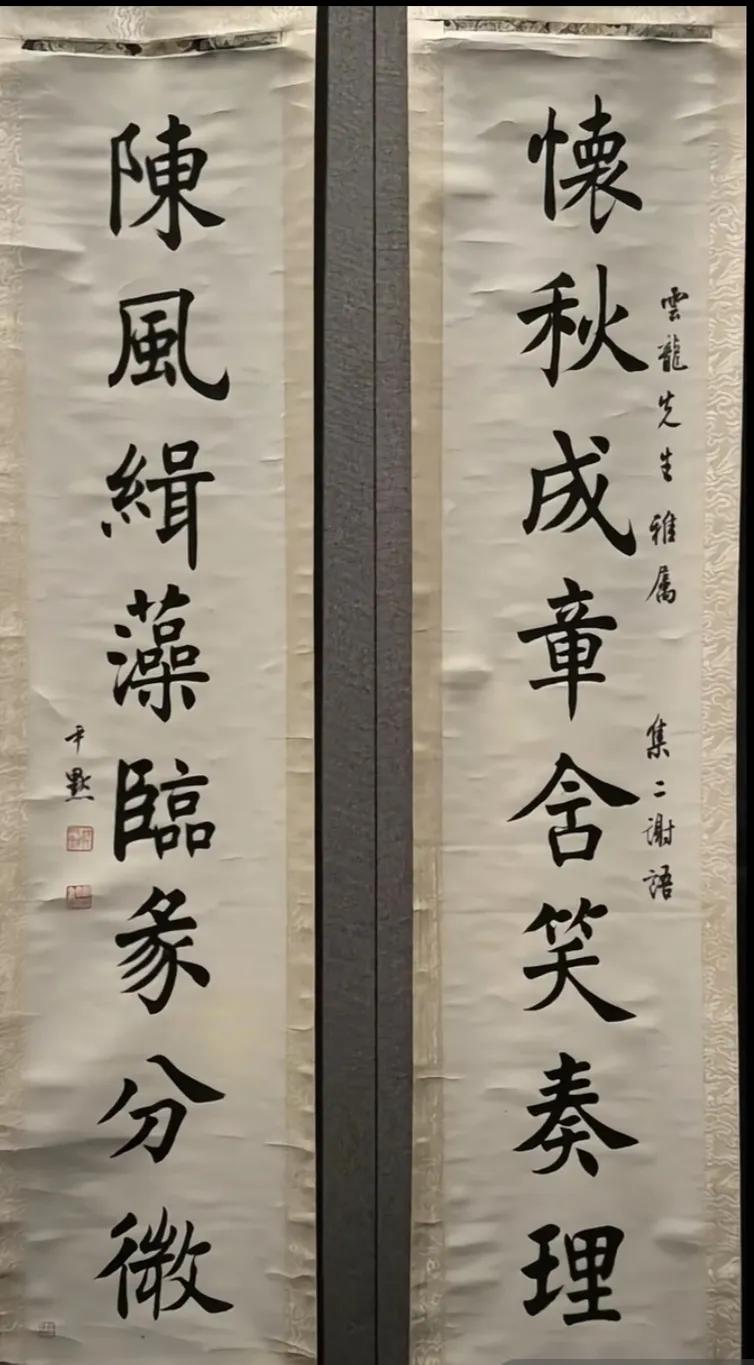 雲龍先生雅屬
集二謝語
懐秋成章含笑奏理
陳風緝藻臨彖分微
尹默